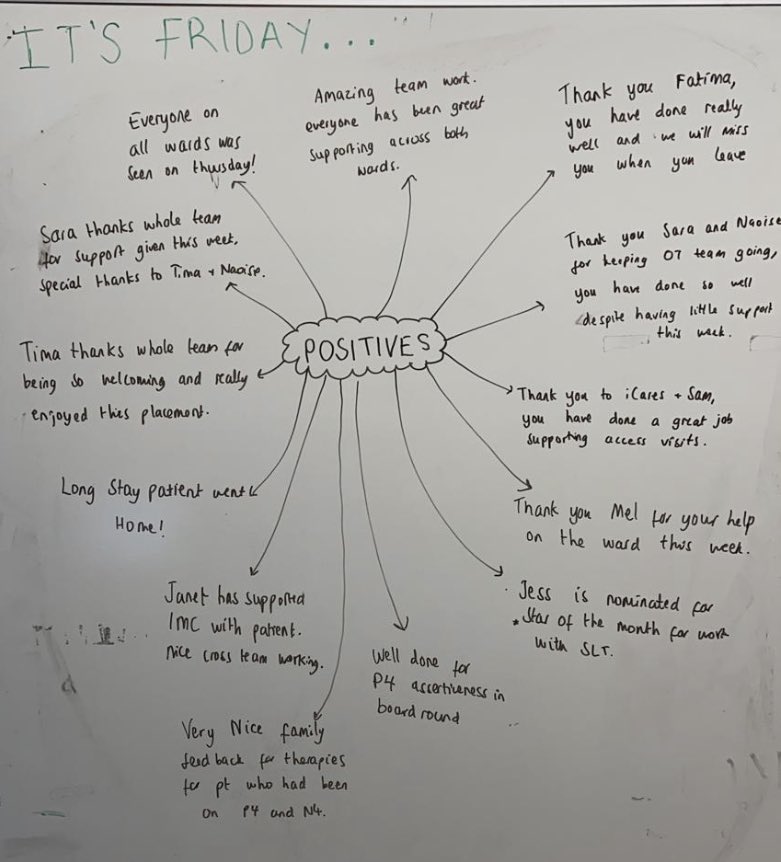 IT'S FRIDAY...
Everyone on
all wards was
seen on thursday!
Amazing team work.
everyone has been great
supporting across both
wards.
Thank you Fatima,
you have done really
well and we will miss
you when you leave
Sara thanks whole team
for support given this week,
special thanks to Tima + Naoise.
Thank you Sara and Naoise
for keeping OT team going,
you have done so well
despite having little support
this week.
POSITIVES
Tima thanks whole team for
being so welcoming and really
enjoyed this placement.
Thank you to iCares + Sam,
you have done a great job
supporting access visits.
Long Stay patient went
Home!
Thank you Mel for your help
on the ward this week.
Janet has supported
IMC with patient.
Nice cross team working.
Jess is nominated for
Star of the month for work
with SLT.
Well done for
P4 assertiveness in
board round
Very Nice family
feedback for therapies
for pt who had been
on P4 and N4.